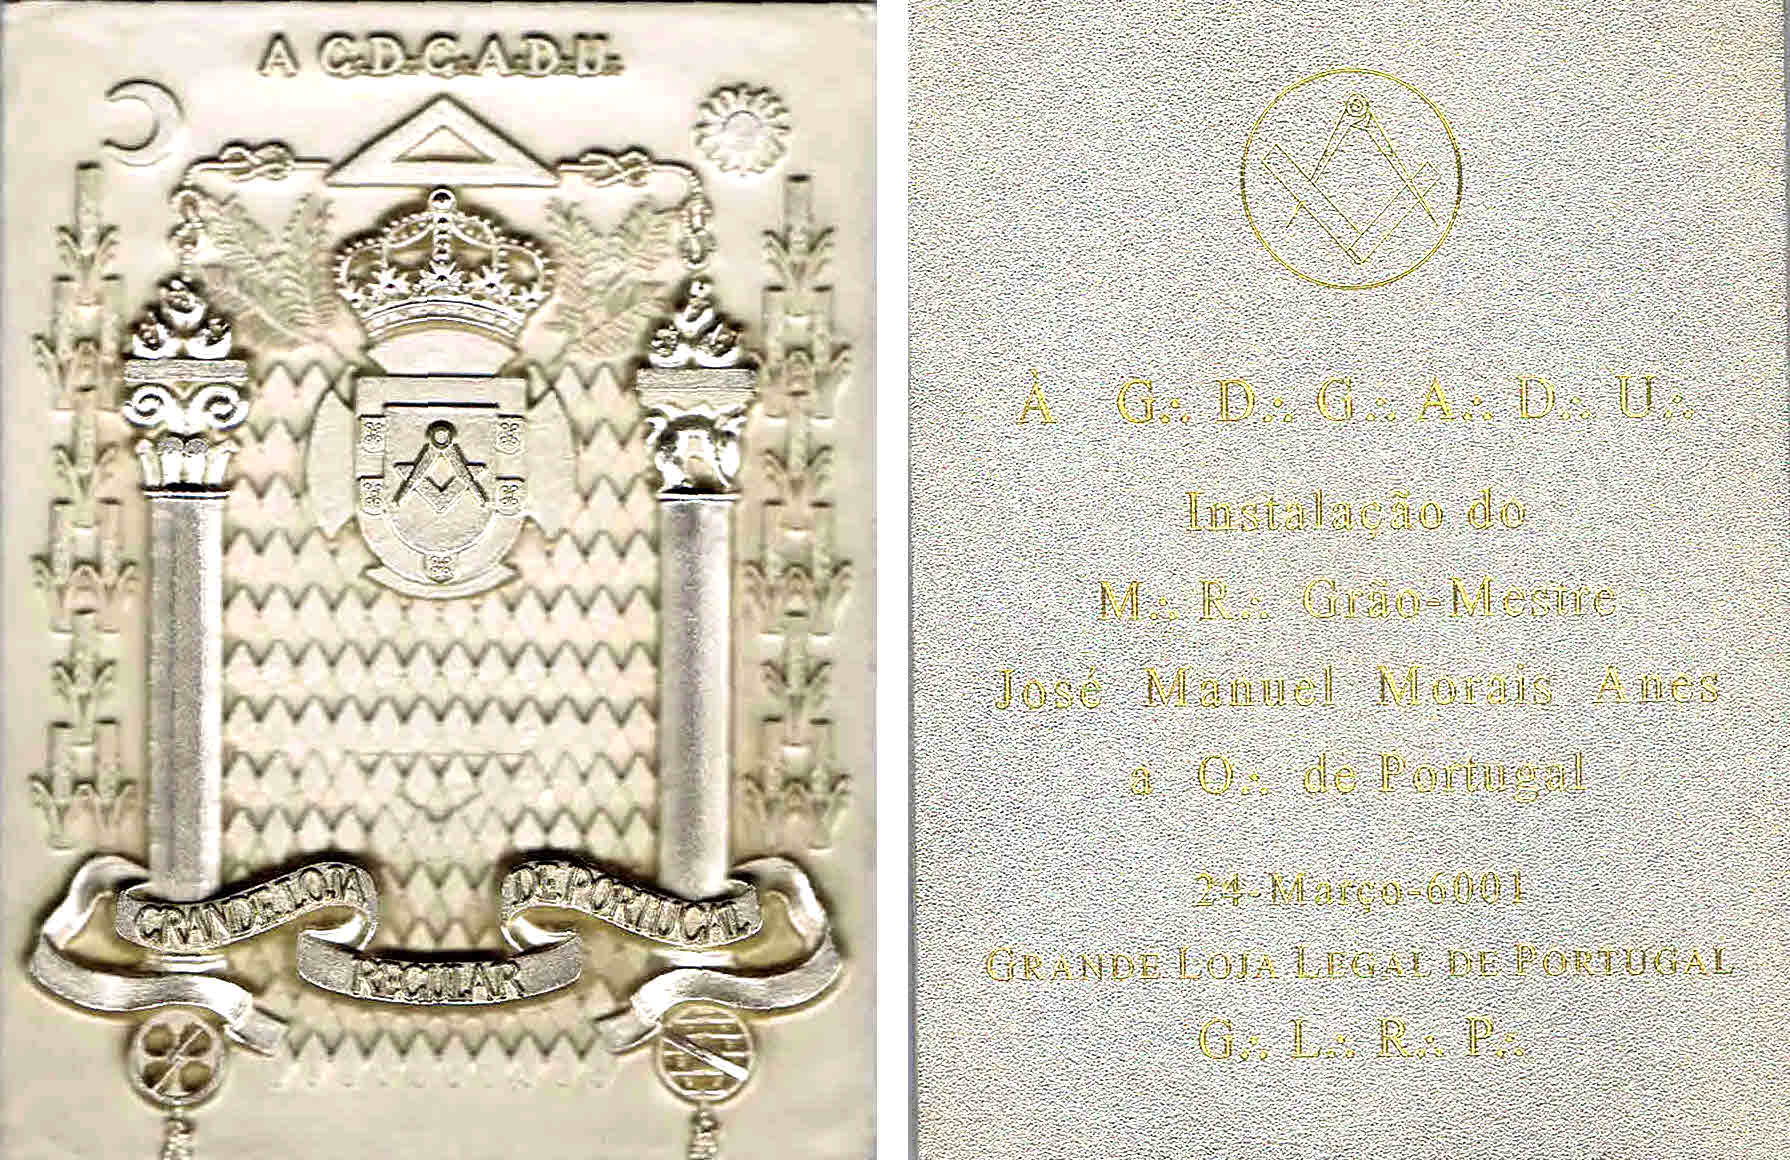 A G.·.D.·.G.·.A.·.D.·.U.·.
GRANDE LOJA
DE PORTUGAL
REGULAR
À G.·. D.·. G.·. A.·. D.·. U.·.
Instalação do
M.·. R.·. Grão-Mestre
José Manuel Morais Anes
a O.·. de Portugal
24-Março-6001
GRANDE LOJA LEGAL DE PORTUGAL
G.·. L.·. R.·. P.·.